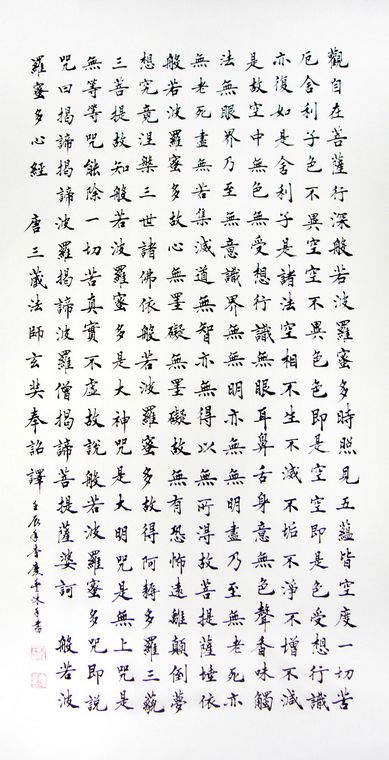 觀自在菩薩行深般若波羅蜜多時照見五蘊皆空度一切苦
厄舍利子色不異空空不異色色即是空空即是色受想行識
亦復如是舍利子是諸法空相不生不滅不垢不淨不增不減
是故空中無色無受想行識無眼耳鼻舌身意無色聲香味觸
法無眼界乃至無意識界無無明亦無無明盡乃至無老死亦
無老死盡無苦集滅道無智亦無得以無所得故菩提薩埵依
般若波羅蜜多故心無罣礙無罣礙故無有恐怖遠離顛倒夢
想究竟涅槃三世諸佛依般若波羅蜜多故得阿耨多羅三藐
三菩提故知般若波羅蜜多是大神咒是大明咒是無上咒是
無等等咒能除一切苦真實不虛故說般若波羅蜜多咒即說
咒曰揭諦揭諦波羅揭諦波羅僧揭諦菩提薩婆訶 般若波
羅蜜多心經 唐三藏法師玄奘奉詔譯 壬辰年